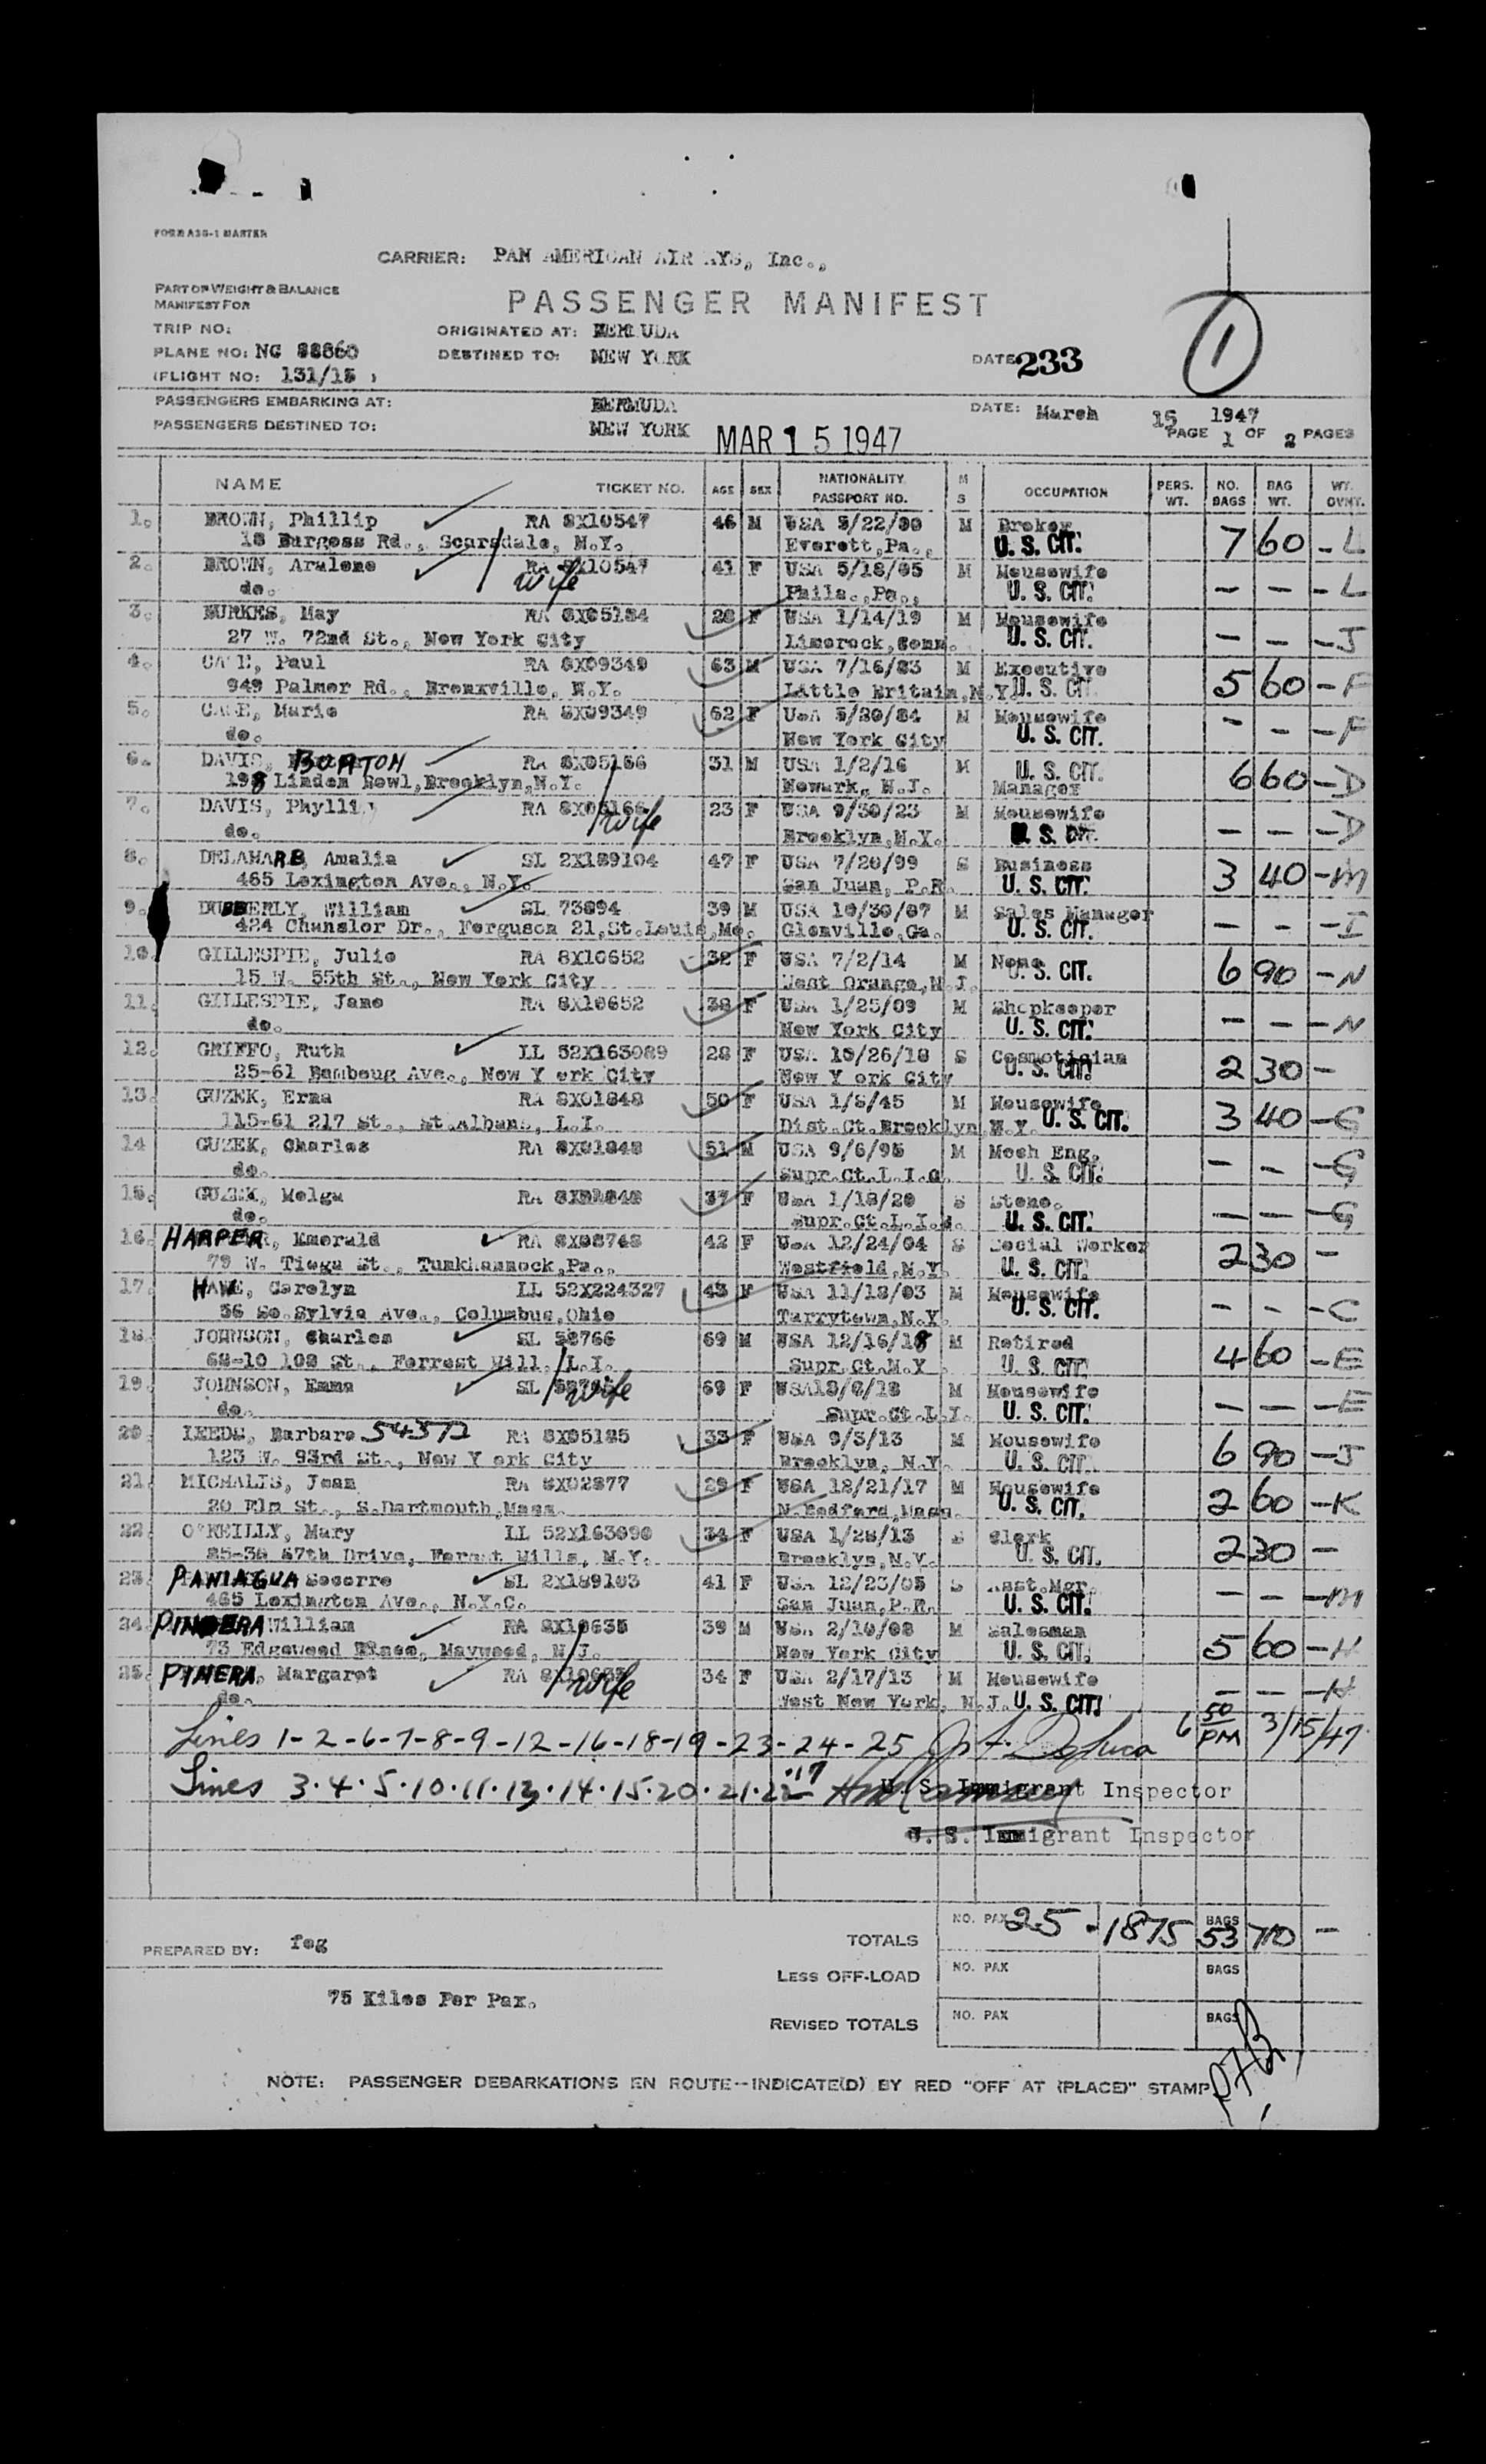 FORM A36-1 MASTER
CARRIER: PAN AMERICAN AIR AYS, Inc.,
PART OF WEIGHT & BALANCE
MANIFEST FOR
PASSENGER MANIFEST
TRIP NO:
ORIGINATED AT: BERMUDA
PLANE NO: NC 88860
DESTINED TO: NEW YORK
DATE 233
1
(FLIGHT NO: 131/15 )
PASSENGERS EMBARKING AT: BERMUDA
DATE: March 15 1947
PASSENGERS DESTINED TO: NEW YORK
MAR 15 1947
PAGE 1 OF 2 PAGES
NAME TICKET NO. AGE SEX NATIONALITY PASSPORT NO. M S OCCUPATION PERS. WT. NO. BAGS BAG WT. WT. OVNT.
1. BROWN, Phillip RA 8X10547 46 M USA 5/22/00 M Broker 7 60 - L
18 Burgess Rd., Scarsdale, N.Y. Everett, Pa., U. S. CIT.
2. BROWN, Aralene RA 8X10547 41 F USA 5/18/05 M Housewife - - - L
do. wife Phila., Pa., U. S. CIT.
3. BURKES, May RA 8X05184 28 F USA 1/14/19 M Housewife - - - J
27 W. 72nd St., New York City Limerock, Conn. U. S. CIT.
4. CA E, Paul RA 8X09349 63 M USA 7/16/83 M Executive 5 60 - F
949 Palmer Rd., Bronxville, N.Y. Little Britain, N.Y. U. S. CIT.
5. CA E, Marie RA 8X09349 62 F USA 5/20/84 M Housewife - - - F
do. New York City U. S. CIT.
6. DAVIS, BURTON RA 8X05166 31 M USA 1/2/16 M U. S. CIT. 6 60 - D
198 Linden Bowl, Brooklyn, N.Y. Newark, N.J. Manager
7. DAVIS, Phyllis RA 8X05166 23 F USA 9/30/23 M Housewife - - - D
do. wife Brooklyn, N.Y. U. S. CIT.
8. DELAHARB, Amalia SL 2X189104 47 F USA 7/20/99 S Business 3 40 - M
465 Lexington Ave., N.Y. San Juan, P.R. U. S. CIT.
9. DUBBERLY, William SL 73894 39 M USA 10/30/07 M Sales Manager - - - I
424 Chanslor Dr., Ferguson 21, St. Louis, Mo. Glenville, Ga. U. S. CIT.
10. GILLESPIE, Julie RA 8X10652 32 F USA 7/2/14 M None 6 90 - N
15 W. 55th St., New York City West Orange, N.J. U. S. CIT.
11. GILLESPIE, Jane RA 8X10652 38 F USA 1/25/09 M Shopkeeper - - - N
do. New York City U. S. CIT.
12. GRIFFO, Ruth LL 52X163089 28 F USA 10/26/18 S Cosmetician 2 30 -
25-61 Bambeug Ave., New Y ork City New Y ork City U. S. CIT.
13. GUZEK, Erma RA 8X01848 50 F USA 1/8/45 M Housewife 3 40 - G
115-61 217 St., St. Albans, L.I. Dist. Ct. Brooklyn, N.Y. U. S. CIT.
14 GUZEK, Charles RA 8X01848 51 M USA 9/6/95 M Mech Eng. - - - G
do. Supr. Ct. L.I.C. U. S. CIT.
15. GUZEK, Helga RA 8X01848 37 F USA 1/18/20 S Steno. - - - G
do. Supr. Ct. L.I. U. S. CIT.
16. HARPER, Emerald RA 8X08748 42 F USA 12/24/04 S Social Worker 2 30 -
79 W. Tioga St., Tunkhannock, Pa., Westfield, N.Y. U. S. CIT.
17. HAWE, Carolyn LL 52X224327 43 F USA 11/18/03 M Housewife - - - C
36 So. Sylvia Ave., Columbus, Ohio Tarrytown, N.Y. U. S. CIT.
18. JOHNSON, Charles SL 58766 69 M USA 12/16/18 M Retired 4 60 - E
68-10 108 St., Forrest Hill, L.I. Supr. Ct. N.Y U. S. CIT.
19. JOHNSON, Emma SL wife 69 F USA 12/6/18 M Housewife - - - E
do. Supr. Ct. L.I. U. S. CIT.
20. LEEDS, Barbara 54372 RA 8X05185 33 F USA 9/3/13 M Housewife 6 90 - J
123 W. 93rd St., New Y ork City Brooklyn, N.Y. U. S. CIT.
21. MICHALIS, Jean RA 8X02877 29 F USA 12/21/17 M Housewife 2 60 - K
20 Elm St., S. Dartmouth, Mass. N. Bedford, Mass. U. S. CIT.
22. O'REILLY, Mary LL 52X163090 34 F USA 1/28/13 S Clerk 2 30 -
85-36 67th Drive, Forest Hills, N.Y. Brooklyn, N.Y. U. S. CIT.
23. PANIAGUA Socorro SL 2X189103 41 F USA 12/23/05 S Asst. Mgr. - - - M
465 Lexington Ave., N.Y.C. San Juan, P.R. U. S. CIT.
24. PINDERA William RA 8X10635 39 M USA 2/10/08 M Salesman 5 60 - H
73 Edgewood Place, Maywood, N.J. New York City U. S. CIT.
25. PYNERA, Margaret RA 8X10635 34 F USA 2/17/13 M Housewife - - - H
do. wife West New York, N.J. U. S. CIT.
Lines 1-2-6-7-8-9-12-16-18-19-23-24-25 6 50 PM 3/15/47
Lines 3.4.5.10.11.13.14.15.20.21.22.17 U. S. Immigrant Inspector
U. S. Immigrant Inspector
PREPARED BY: feg
TOTALS NO. PAX 25 - 1875 BAGS 53 710 -
LESS OFF-LOAD NO. PAX BAGS
75 Kilos Per Pax.
REVISED TOTALS NO. PAX BAGS
NOTE: PASSENGER DEBARKATIONS EN ROUTE--INDICATE(D) BY RED "OFF AT (PLACE)" STAMP